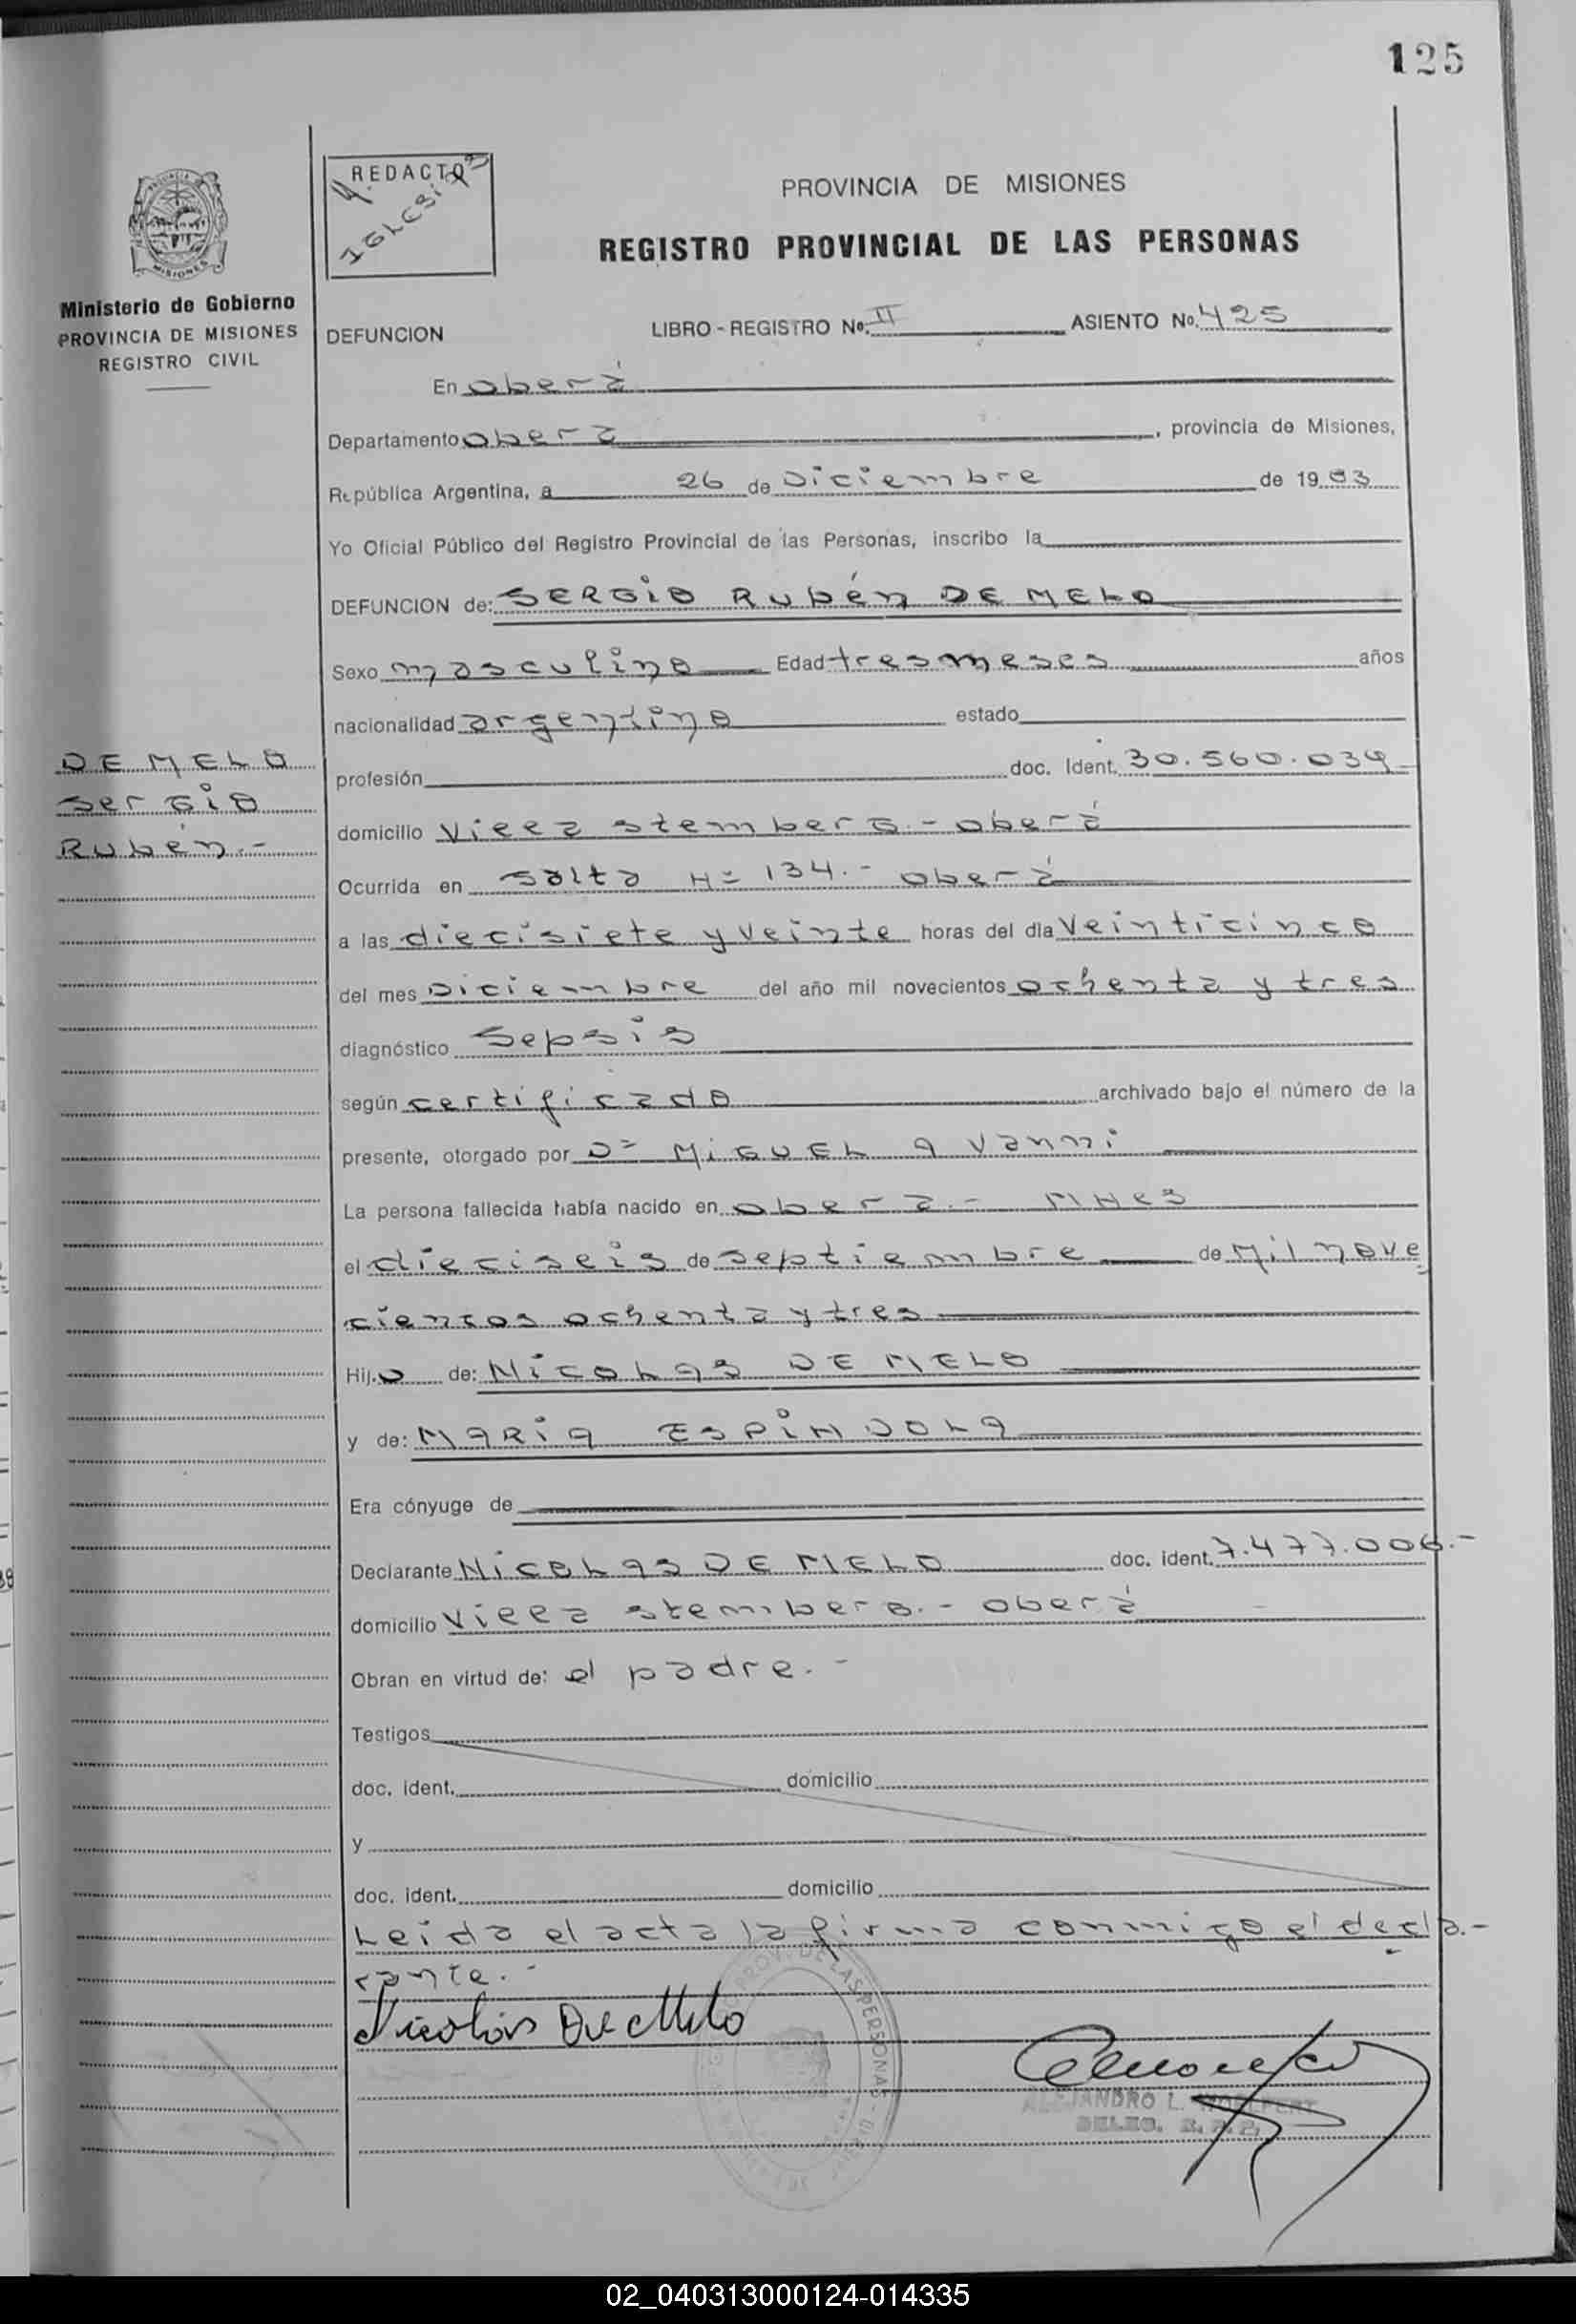 125
REDACTO
A. IGLESIAS
PROVINCIA DE MISIONES
REGISTRO PROVINCIAL DE LAS PERSONAS
MISIONES
Ministerio de Gobierno
PROVINCIA DE MISIONES
REGISTRO CIVIL
DEFUNCION LIBRO - REGISTRO No. II ASIENTO No. 425
En oberá
Departamento oberá, provincia de Misiones,
República Argentina, a 26 de Diciembre de 1983
Yo Oficial Público del Registro Provincial de las Personas, inscribo la
DEFUNCION de: SERGIO Rubén DE MELO
Sexo masculino Edad tres meses años
nacionalidad argentino estado
DE MELO
Sergio
Rubén.-
profesión doc. Ident. 30.560.039
domicilio Villa stemberg.- oberá
Ocurrida en salta Nº 134.- oberá
a las diecisiete y veinte horas del día veinticinco
del mes Diciembre del año mil novecientos ochenta y tres
diagnóstico Sepsis
según certificado archivado bajo el número de la
presente, otorgado por Dr MIGUEL A Vanni
La persona fallecida había nacido en oberá.- MNES
el dieciseis de septiembre de Mil nove
cientos ochenta y tres
Hij.o de: NICOLAS DE MELO
y de: MARIA ESPINDOLA
Era cónyuge de
Declarante NICOLAS DE MELO doc. ident. 7.477.006.-
domicilio Villa stemberg.- oberá
Obran en virtud de: el padre.-
Testigos
doc. ident. domicilio
y
doc. ident. domicilio
Leida el acta la firma conmigo el decla.-
rante.-
Nicolás De Melo
PROV. DE LAS PERSONAS
02_040313000124-014335